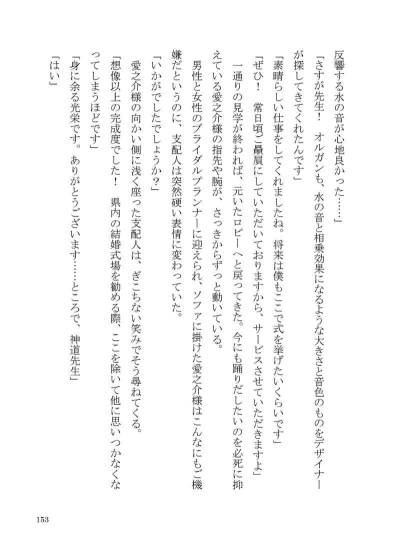 反響する水の音が心地良かった……」
「さすが先生！　オルガンも、水の音と相乗効果になるような大きさと音色のものをデザイナー
が探してきてくれたんです」
「素晴らしい仕事をしてくれましたね。将来は僕もここで式を挙げたいくらいです」
「ぜひ！　常日頃ご贔屓にしていただいておりますから、サービスさせていただきますよ」
　一通りの見学が終われば、元いたロビーへと戻ってきた。今にも踊りだしたいのを必死に抑
えている愛之介様の指先や腕が、さっきからずっと動いている。
　男性と女性のブライダルプランナーに迎えられ、ソファに掛けた愛之介様はこんなにもご機
嫌だというのに、支配人は突然硬い表情に変わっていた。
「いかがでしたでしょうか？」
　愛之介様の向かい側に浅く座った支配人は、ぎこちない笑みでそう尋ねてくる。
「想像以上の完成度でした！　県内の結婚式場を勧める際、ここを除いて他に思いつかなくな
ってしまうほどです」
「身に余る光栄です。ありがとうございます……ところで、神道先生」
「はい」
153